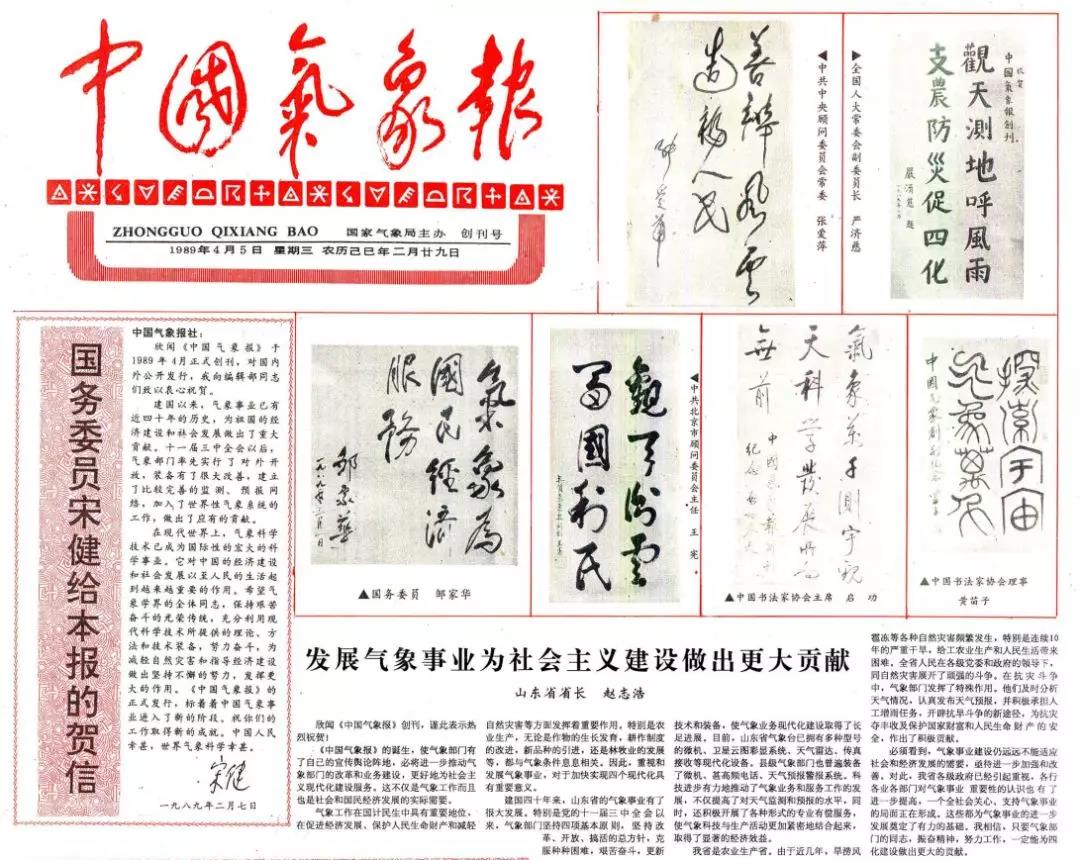 中國氣象報
ZHONGGUO QIXIANG BAO 国家气象局主办 创刊号
1989年4月5日 星期三 农历己巳年二月廿九日
善辨风云
造福人民
张爱萍
▲中共中央顾问委员会常委 张爱萍
▲全国人大常委会副委员长 严济慈
收贺
中国气象報创刊
觀天測地呼風雨
支農防災促四化
嚴濟慈 题
国务委员宋健给本报的贺信
中国气象报社:
欣闻《中国气象报》于
1989年4月正式创刊,对国内
外公开发行,我向编辑部同志
们致以衷心祝贺。
建国以来,气象事业已有
近四十年的历史,为祖国的经
济建设和社会发展做出了重大
贡献。十一届三中全会以后,
气象部门率先实行了对外开
放,装备有了很大改善,建立
了比较完善的监测、预报网
络,加入了世界性气象系统的
工作,做出了应有的贡献。
在现代世界上,气象科学
技术已成为国际性的宏大的科
学事业。它对中国的经济建设
和社会发展以至人民的生活起
到越来越重要的作用。希望气
象学界的全体同志,保持艰苦
奋斗的光荣传统,充分利用现
代科学技术所提供的理论、方
法和技术装备,努力奋斗,为
减轻自然灾害和指导经济建设
做出坚持不懈的努力,发挥更
大的作用。《中国气象报》的
正式发行,标着着中国气象事
业进入了新的阶段。祝你们的
工作取得新的成就。中国人民
幸甚,世界气象科学幸甚。
宋健
一九八九年二月七日
氣象為
國民經濟
服務
邹家华
一九八九年三月一日
▲国务委员 邹家华
觀天測雲
富國利民
▲中共北京市顾问委员会主任 王 宪
氣象萬千測宇觀
天科学發展所向
無前
▲中国书法家协会主席 启 功
探索宇宙
气象萬千
▲中国书法家协会理事
黄苗子
发展气象事业为社会主义建设做出更大贡献
山东省省长 赵志浩
欣闻《中国气象报》创刊,谨此表示热
烈祝贺!
《中国气象报》的诞生,使气象部门有
了自己的宣传舆论阵地,必将进一步推动气
象部门的改革和业务建设,更好地为社会主
义现代化建设服务。这不仅是气象工作而且
也是社会和国民经济发展的实际需要。
气象工作在国计民生中具有重要地位,
在促进经济发展、保护人民生命财产和减轻
自然灾害等方面发挥着重要作用,特别是农
业生产,无论是作物的生长发育,耕作制度
的改进,新品种的引进,还是林牧业的发展
等,都与气象条件息息相关。因此,重视和
发展气象事业,对于加快实现四个现代化具
有重要意义。
建国四十年来,山东省的气象事业有了
很大发展。特别是党的十一届三中全会以
来,气象部门坚持四项基本原则,坚持改
革、开放、搞活的总方针,克
服种种困难,艰苦奋斗,更新
技术和装备,使气象业务现代化建设取得了长
足进展。目前,山东省气象台已拥有多种型号
的微机、卫星云图彩显系统、天气雷达、传真
接收等现代化设备。县级气象部门也普遍装备
了微机、甚高频电话、天气预报警报系统。科
技进步有力地推动了气象业务和服务工作的发
展,不仅提高了对天气监测和预报的水平,同
时,还积极开展了各种形式的专业有偿服务,
使气象科技与生产活动更加紧密地结合起来,
取得了显著的经济效益。
我省是农业生产省。由于近几年,旱涝风
雹冻等各种自然灾害频繁发生,特别是连续10
年的严重干旱,给工农业生产和人民生活带来
困难,全省人民在各级党委和政府的领导下,
同自然灾害展开了顽强的斗争。在抗灾斗争
中,气象部门发挥了特殊作用。他们及时分析
天气情况,认真发布天气预报,并积极承担人
工增雨任务,开辟抗旱斗争的新途径,为抗灾
夺丰收及保护国家财富和人民生命财产的安
全,作出了积极贡献。
必须看到,气象事业建设仍远远不能适应
社会和经济发展的需要,亟待进一步加强和改
善。对此,我省各级政府已经引起重视。各行
各业各部门对气象事业重要性的认识也有了
进一步提高,一个全社会关心,支持气象事业
的局面正在形成。这些都为气象事业的进一步
发展奠定了有力的基础。我相信,只要气象部
门的同志,振奋精神,努力工作,一定能为四
化建设做出更大的贡献。